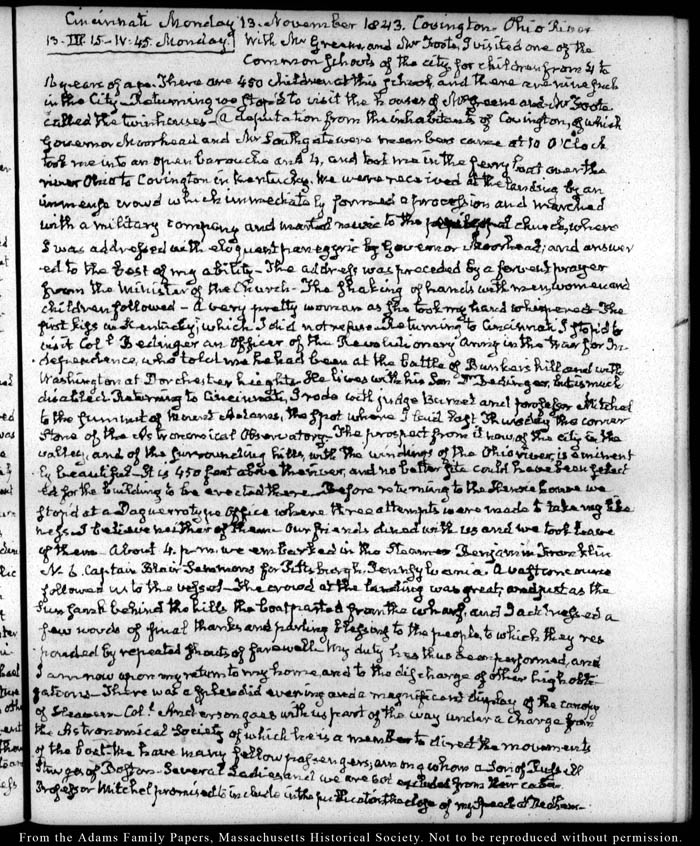 Cincinnati Monday 13. November 1843. Covington. Ohio River
13. III. 15 - IV: 45. Monday. With Mr Greene, and Mr Foote, I visited one of the
Common Schools of the city for children from 4 to
16 years of age. There are 450 children at this School, and there are nine such
in the City - Returning we stop'd to visit the houses of Mr Greene and Mr Foote
called the twin houses - A deputation from the inhabitants of Covington, of which
Governor Moorhead and Mr Southgate were members came at 10 O'Clock
took me into an open barouche and 4, and took me in the ferry boat over the
river Ohio to Covington in Kentucky. We were received at the landing by an
immense crowd which immediately formed a procession and marched
with a military company and martial music to the church, where
I was addressed with eloquent panegyric by Governor Moorhead; and answer
ed to the best of my ability - The address was preceded by a fervent prayer
from the Minister of the Church - The shaking of hands with men, women and
children followed - A very pretty woman as she took my hand whispered The
first kiss in Kentucky, which I did not refuse - Returning to Cincinnati I stop'd to
visit Col.l Bedinger an Officer of the Revolutionary Army in the War for In
dependence, who told me he had been at the battle of Bunkers hill and with
Washington at Dorchester heights. He lives with his Son Bedinger, but is much
disabled. Returning to Cincinnati, I rode with judge Burnet and professor Mitchel
to the summit of Mount Adams, the spot where I laid last Thursday the corner
Stone of the Astronomical Observatory - The prospect from it now of the city in the
valley, and of the surrounding hills, with the windings of the Ohio river, is eminent
ly beautiful - It is 450 feet above the river, and no better site could have been select
ed for the building to be erected there - Before returning to the Henrie house we
stop'd at a Daguerrotype Office where three attempts were made to take my like
ness - I believe neither of them Our friends dined with us and we took leave
of them - About 4. p.m. we embarked in the Steamer Benjamin Franklin
N. 6. Captain Blair Semmons for Pittsburgh. Pennsylvania. A vast concourse
followed us to the vessel - The crowd at the landing was great; and just as the
Sun sank behind the hills the boat parted from the wharf, and I addressed a
few words of final thanks and parting blessing to the people, to which they res
ponded by repeated shouts of farewell - My duty has thus been performed, and
I am now upon my return to my home, and to the discharge of other high obli
gations - There was a splendid evening and a magnificent display of the canopy
of Heaven - Col.l Anderson goes with us part of the way under a charge from
the Astronomical Society of which he is a member to direct the movements
of the boat. We have many fellow passengers; among whom a Son of Russell
Sturges of Boston - Several Ladies and we are not excluded from their cabin
Professor Mitchel promised to include in the publication the close of my Speech at Dedham -
From the Adams Family Papers, Massachusetts Historical Society. Not to be reproduced without permission.